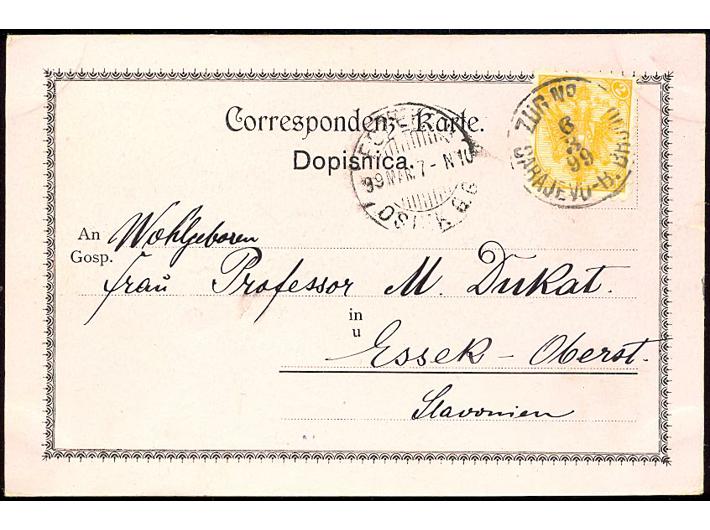 Correspondenz-Karte.
Dopisnica.
ZUG No
6
3
99
SARAJEVO-B. BROD
2
99 MÁR. 7-N10
An Wohlgeboren
Gosp.
Frau Professor M. Dukat.
in
u
Essek-Oberst.
Slavonien